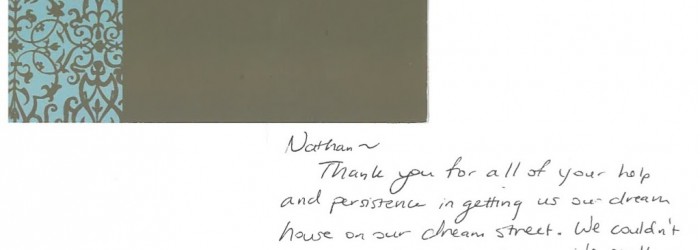 Nathan~
Thank you for all of your help
and persistence in getting us our dream
house on our dream street. We couldn't